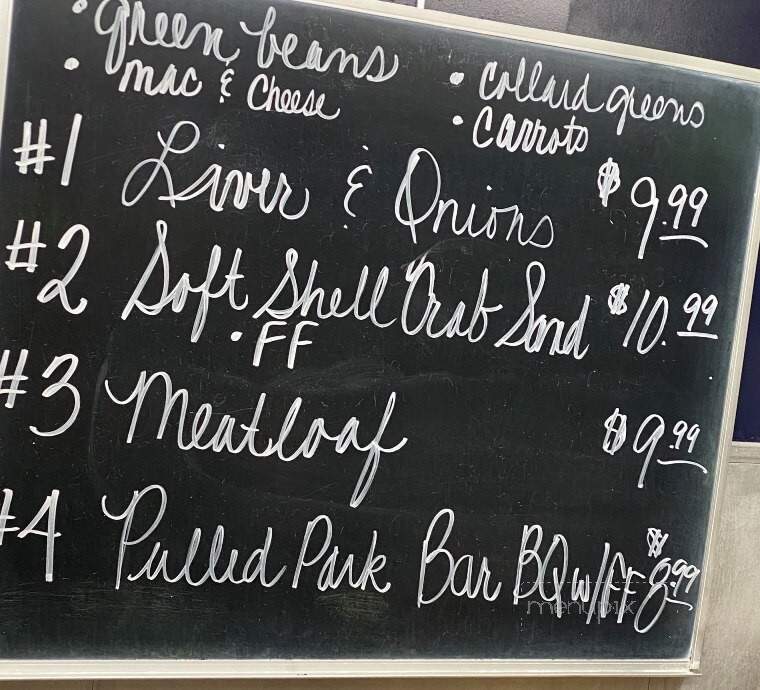 • green beans
• mac & Cheese
• Collard greens
• Carrots
#1 Liver & Onions $9.99
#2 Soft Shell Crab Sand $10.99
• FF
#3 Meatloaf $9.99
#4 Pulled Pork Bar BQ w/FF $8.99
menupix